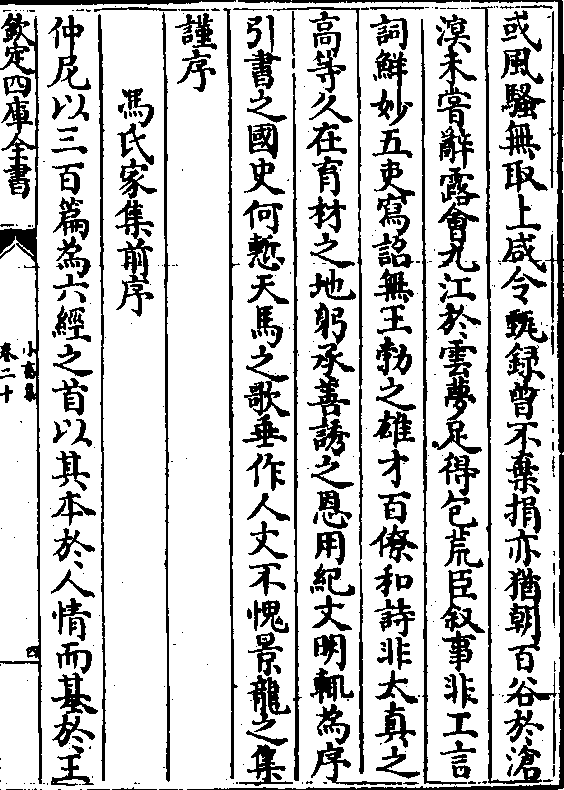 或風騷無取上咸令甄録曾不棄捐亦猶朝百谷於滄
溟未嘗辭露會九江於雲夢足得包荒臣叙事非工言
詞鮮妙五吏寫詔無王勃之雄才百僚和詩非太真之
高等久在育材之地躬承善誘之恩用紀文明輒為序
引書之國史何慙天馬之歌垂作人文不愧景龍之集
謹序
馮氏家集前序
仲尼以三百篇為六經之首以其本於人情而基於王
欽定四庫全書
小畜集
卷二十
四